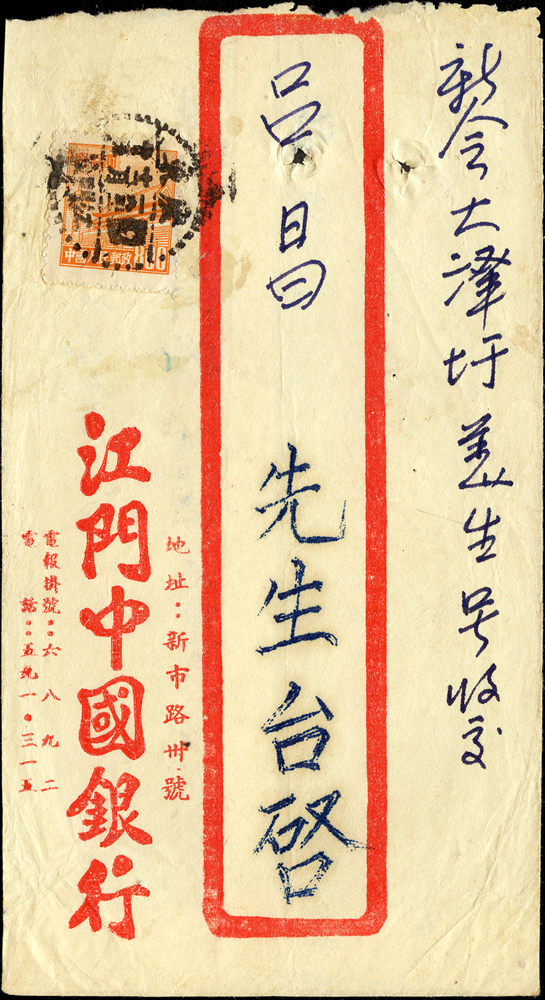 新会大澤圩美生号收交
吕昌
先生台啓
地址：新市路卅號
江門中國銀行
電報掛號：六八九二
電話：五九一・三一五
中國人民郵政 800